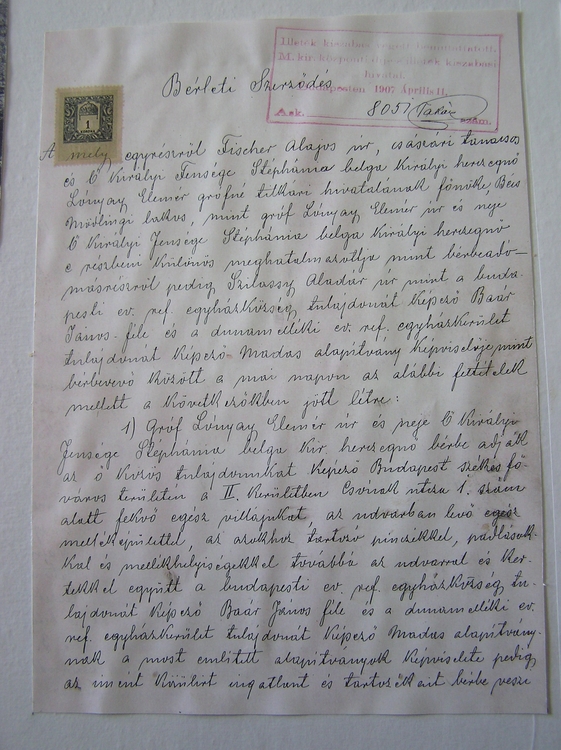 Illeték kiszabás végett bemutattatott.
M. kir. központi díj- és illeték kiszabási
hivatal.
Budapesten 1907 Április 11.
8057 szám.
Bérleti Szerződés
1
A mely egyrészről Fischer Alajos úr, császári tanácsos
és Ő Királyi Fensége Stéphánia belga Királyi herczegnő
Lónyay Elemér grófné titkári hivatalának főnöke, Bécs
Mödlingi lakos, mint gróf Lónyay Elemér úr és neje
Ő Királyi Fensége Stéphánia belga Királyi herczegnő
e részbeni Különös meghatalmazottja mint bérbeadó-
másrészről pedig Szilassy Aladár úr mint a buda-
pesti ev. ref. egyházközség tulajdonát Képező Baár
János-féle és a dunamelléki ev. ref. egyházkerület
tulajdonát Képező Madas alapítvány Képviselője, mint
bérbevevő között a mai napon az alábbi feltételek
mellett a Következőkben jött létre:
1) Gróf Lónyay Elemér úr és neje Ő Királyi
Fensége Stéphánia belga Kir. herczegnő bérbe adják
az ő Közös tulajdonukat Képező Budapest székes fő-
város területén a II. Kerületben Csónak utcza 1. szám
alatt fekvő egész villájukat, az udvarban levő egész
melléképülettel, az azokhoz tartozó pinczékkel, padlások-
kal és mellékhelyiségekkel továbbá az udvarral és Ker-
tekkel együtt a budapesti ev. ref. egyházközség tu-
lajdonát Képező Baár János féle és a dunamelléki ev.
ref. egyházkerület tulajdonát Képező Madas alapítvány-
nak a most említett alapítványok Képviselete pedig
az imént Körülírt ingatlant és tartozékait bérbe veszi